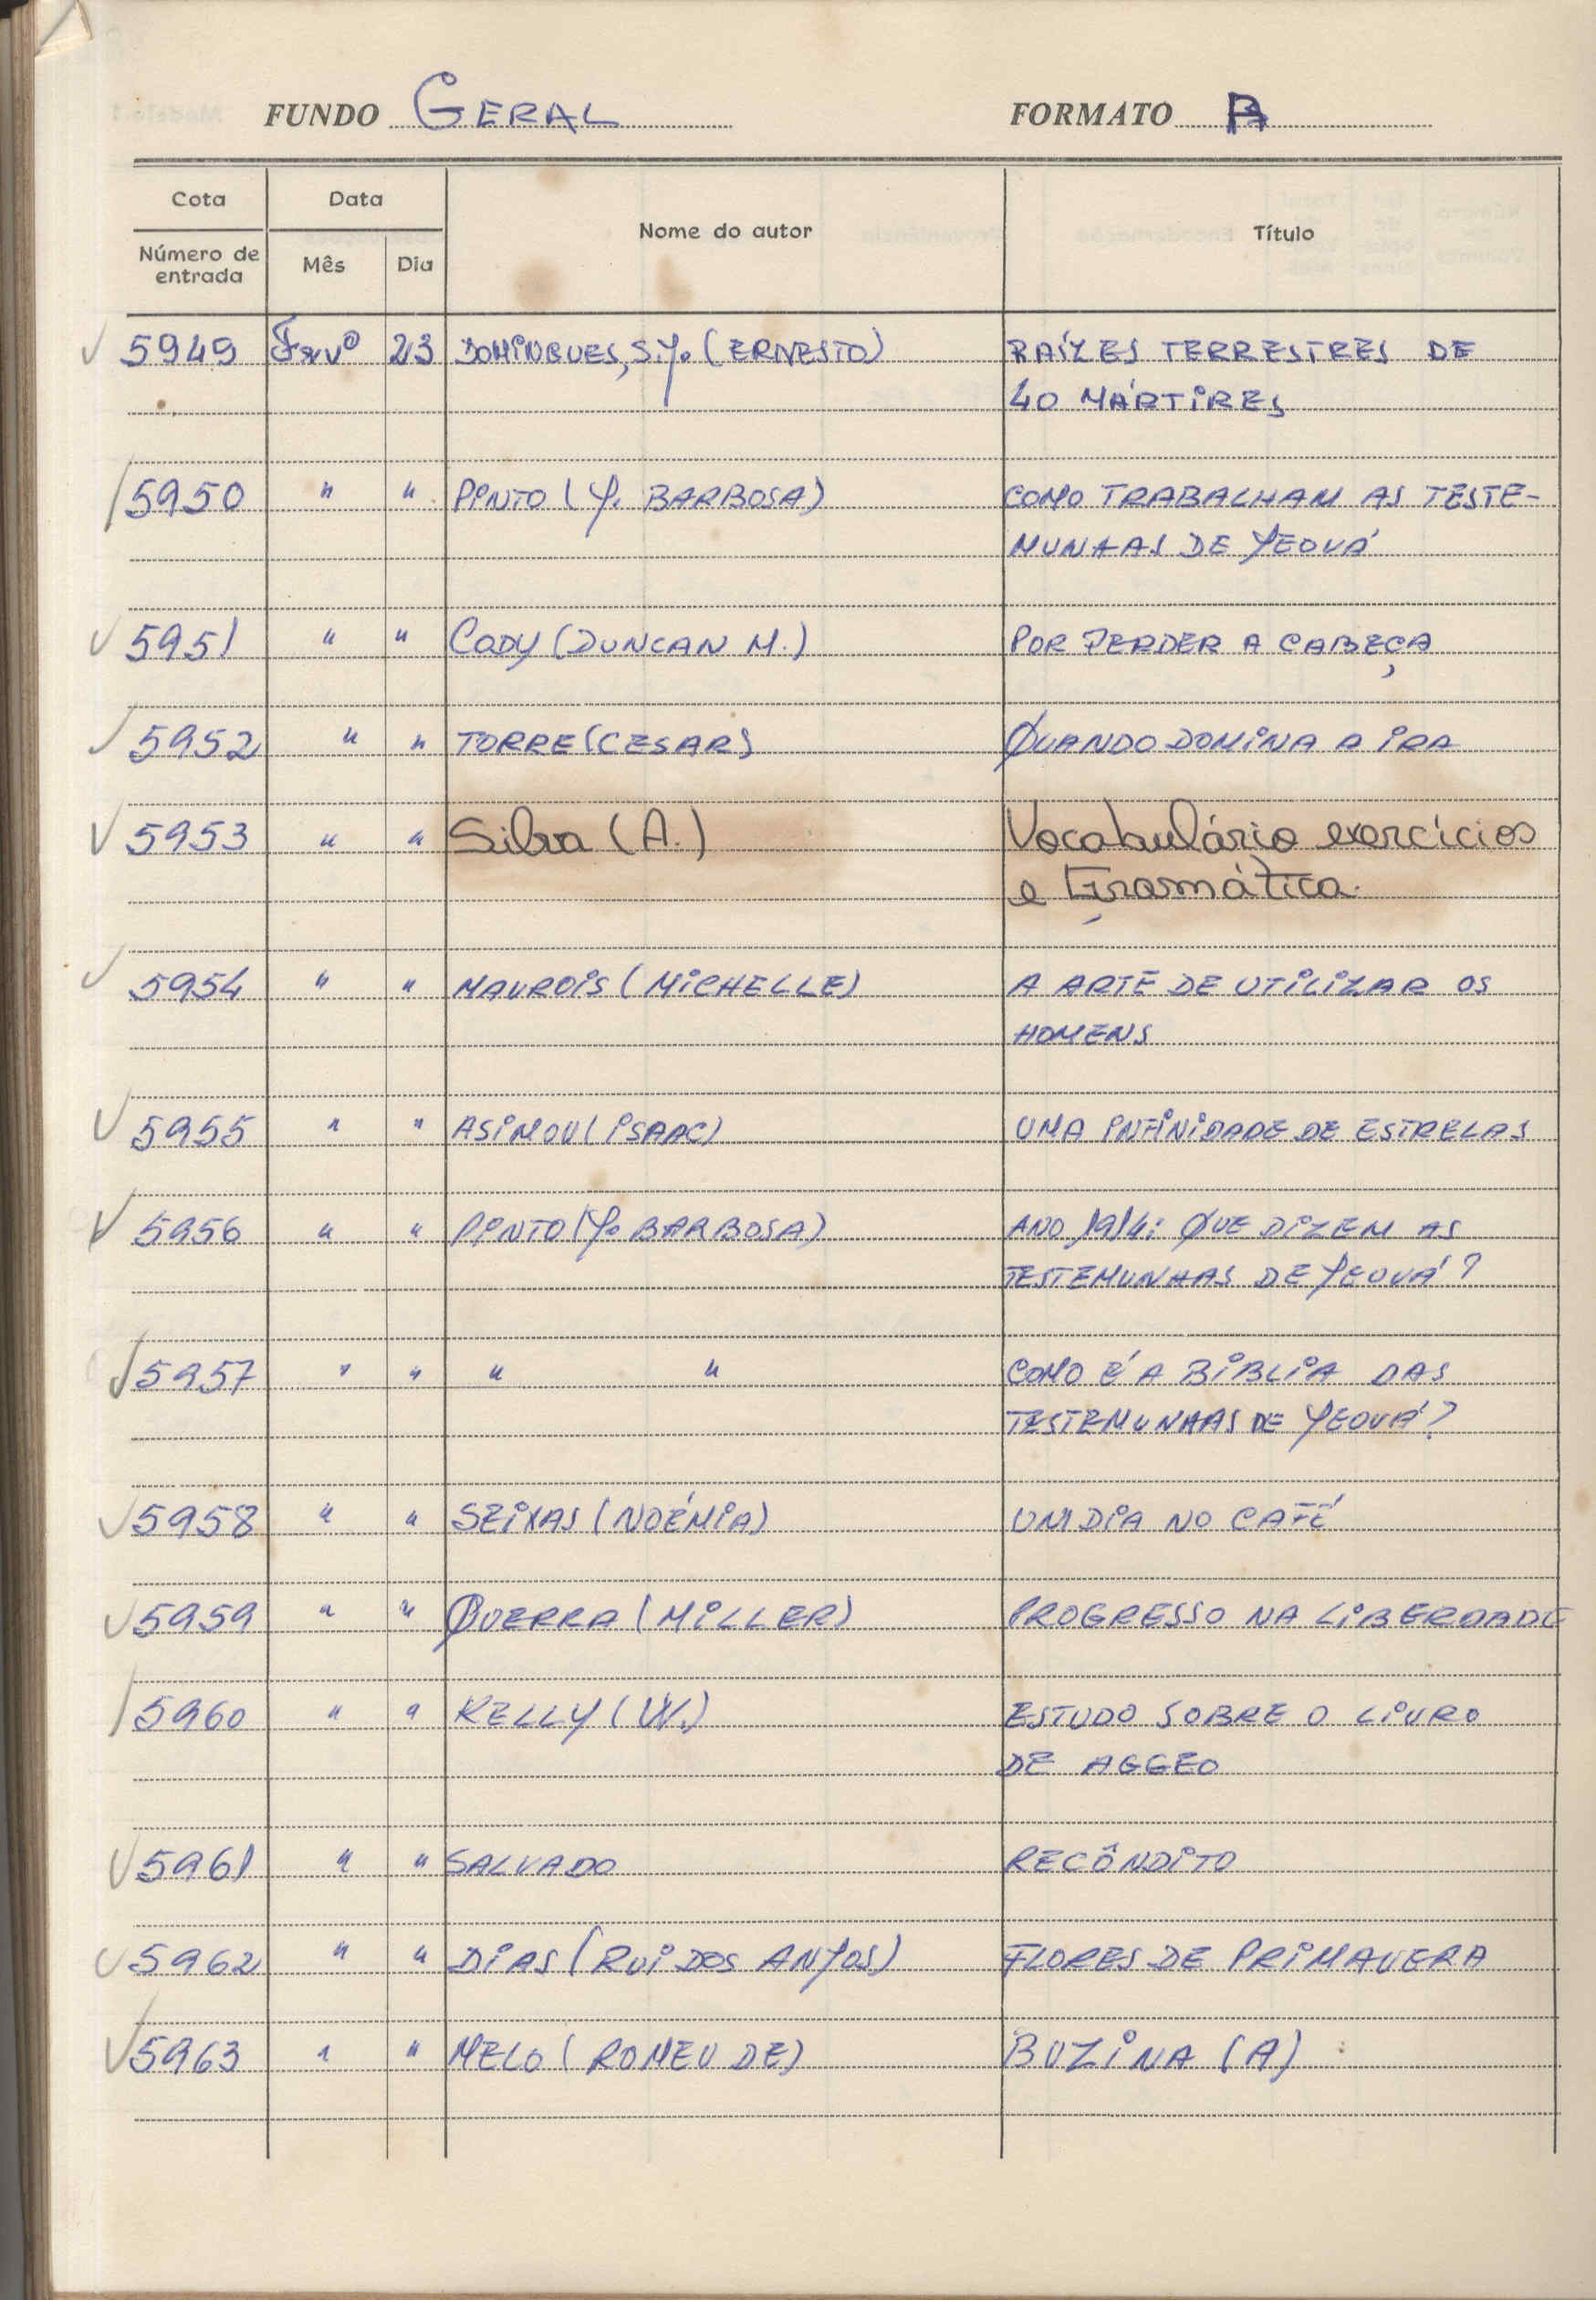 FUNDO GERAL FORMATO A
Cota Data Nome do autor Título
Número de entrada Mês Dia
5949 Fevº 23 DOMINGUES, S.J. (ERNESTO) RAÍZES TERRESTRES DE
40 MÁRTIRES
5950 " " PINTO (J. BARBOSA) COMO TRABALHAM AS TESTE-
MUNHAS DE JEOVÁ
5951 " " CODY (DUNCAN M.) POR PERDER A CABEÇA
5952 " " TORRE (CESAR) QUANDO DOMINA A IRA
5953 " " Silva (A.) Vocabulário exercícios
e Gramática.
5954 " " MAUROIS (MICHELLE) A ARTE DE UTILIZAR OS
HOMENS
5955 " " ASIMOV (ISAAC) UMA INFINIDADE DE ESTRELAS
5956 " " PINTO (J. BARBOSA) ANO 1914: QUE DIZEM AS
TESTEMUNHAS DE JEOVÁ?
5957 " " " " COMO É A BIBLIA DAS
TESTEMUNHAS DE JEOVÁ?
5958 " " SEIXAS (NOÉMIA) UM DIA NO CAFÉ
5959 " " GUERRA (MILLER) PROGRESSO NA LIBERDADE
5960 " " KELLY (W.) ESTUDO SOBRE O LIVRO
DE AGGEO
5961 " " SALVADO RECÔNDITO
5962 " " DIAS (RUI DOS ANJOS) FLORES DE PRIMAVERA
5963 " " MELO (ROMEU DE) BUZINA (A)